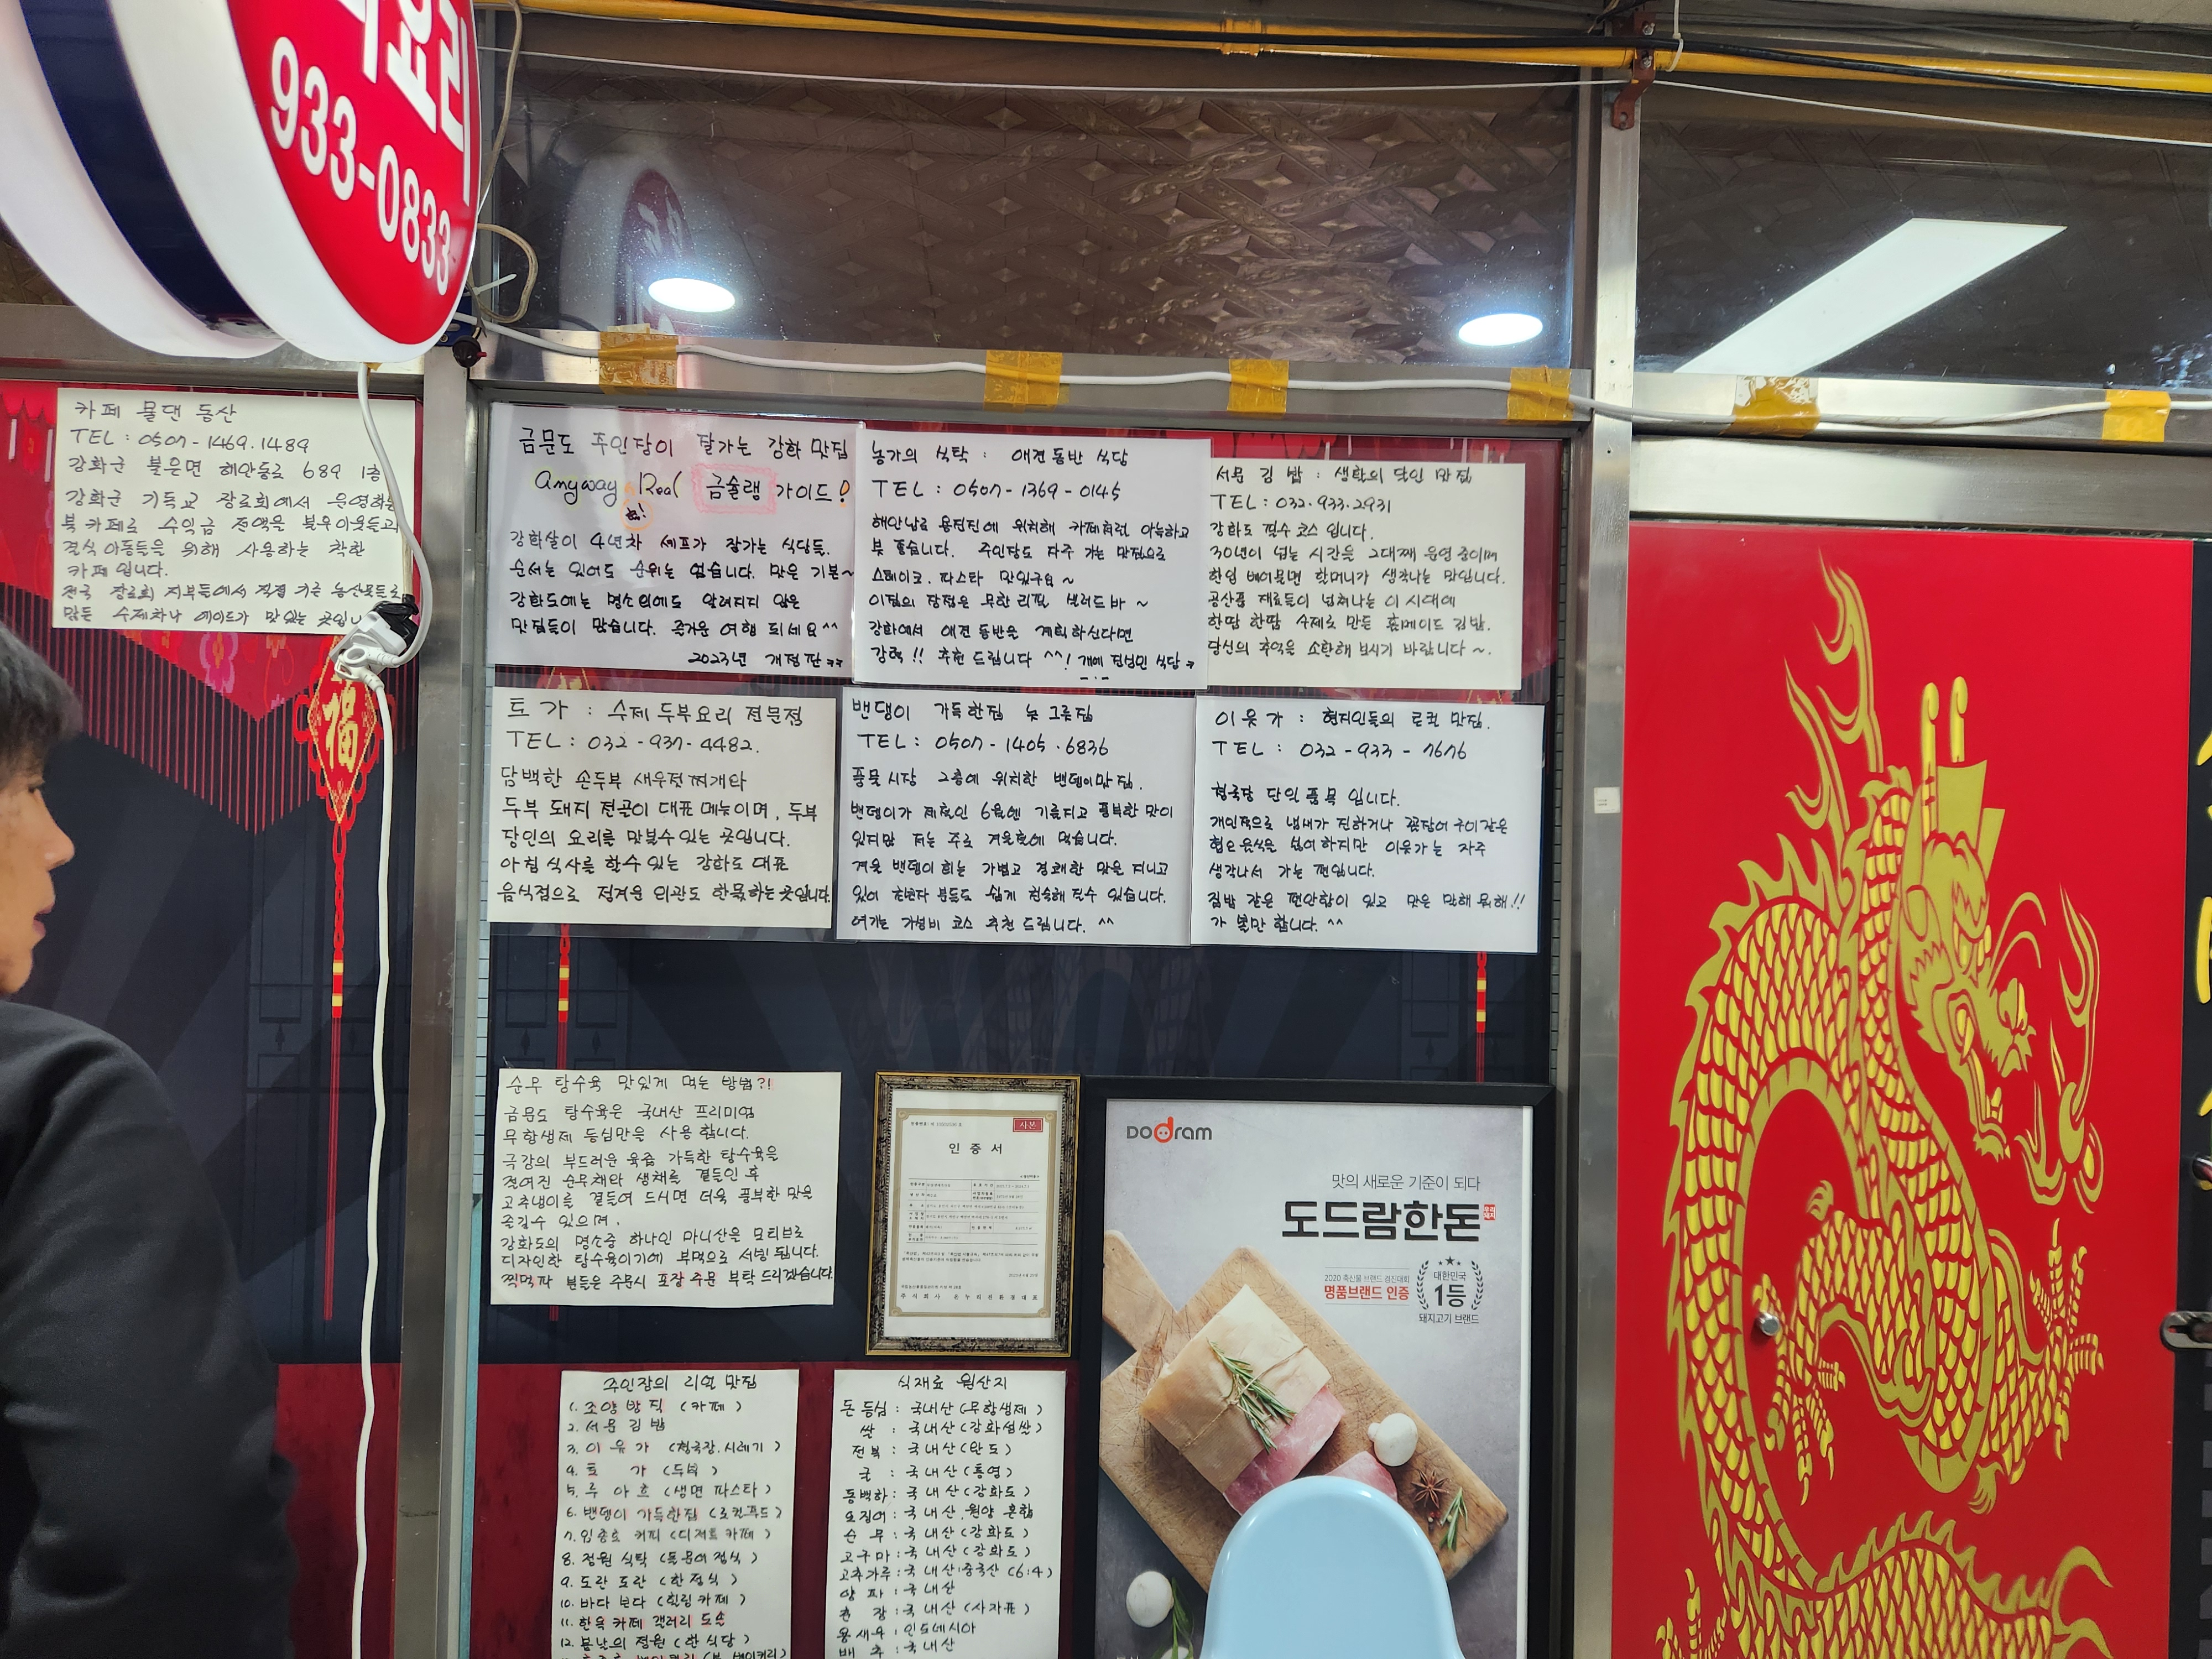 요리
933-0833
카페 물댄 동산
TEL : 0507-1469.1489
강화군 불은면 해안동로 689 1층
강화군 기독교 장로회에서 운영하는
북카페로 수익금 전액을 불우이웃들과
결식아동들을 위해 사용하는 착한
카페입니다.
전국 장로회 지부들에서 직접 키운 농산물들로
만든 수제차나 에이드가 맛있는 곳입니
금문도 주인장이 잘가는 강화 맛집
anyway Real 금슐랭 가이드!
강화살이 4년차 셰프가 잘가는 식당들.
순서는 있어도 순위는 없습니다. 맛은 기본~
강화도에는 명소외에도 알려지지 않은
맛집들이 많습니다. 즐거운 여행 되세요^^
2023년 개정판
농가의 식탁 : 애견동반 식당
TEL : 0507-1369-0145
해안남로 용진진에 위치해 카페처럼 아늑하고
뷰 좋습니다. 주인장도 자주 가는 맛집으로
스테이크. 파스타 맛있구요~
이집의 장점은 무한리필 샐러드바~
강화에서 애견동반을 계획하신다면
강력!! 추천 드립니다^^! 개에 진심인 식당
서문김밥 : 생활의 달인 맛집
TEL : 032.933.2931
강화도 필수 코스 입니다.
30년이 넘는 시간을 2대째 운영중이며
한입 베어물면 할머니가 생각나는 맛입니다.
공산품 재료들이 넘쳐나는 이 시대에
한땀 한땀 수제로 만든 홈메이드 김밥.
당신의 추억을 소환해 보시기 바랍니다~.
토가 : 수제 두부요리 전문점
TEL : 032-937-4482.
담백한 손두부 새우젓찌개와
두부 돼지 전골이 대표 메뉴이며, 두부
장인의 요리를 맛볼수 있는 곳입니다.
아침식사를 할수있는 강화도 대표
음식점으로 정겨운 외관도 한몫하는곳입니다.
밴댕이 가득한집
TEL : 0507-1405.6836
풍물시장 2층에 위치한 밴댕이맛집.
밴댕이가 제철인 6월엔 기름지고 풍부한 맛이
있지만 저는 주로 겨울철에 먹습니다.
겨울 밴댕이회는 가볍고 경쾌한 맛을 지니고
있어 초보자 분들도 쉽게 접할수 있습니다.
여기는 가성비 코스 추천 드립니다. ^^
이웃가 : 현지인들의 로컬 맛집.
TEL : 032-933-7676
청국장 단일품목 입니다.
개인적으로 냄새가 진하거나 꼼장어구이같은
혐오음식은 싫어하지만 이웃가는 자주
생각나서 가는 편입니다.
집밥 같은 편안함이 있고 맛은 말해 뭐해!!
가 볼만 합니다. ^^
순무 탕수육 맛있게 먹는 방법?!
금문도 탕수육은 국내산 프리미엄
무항생제 등심만을 사용 합니다.
극강의 부드러운 육즙 가득한 탕수육을
절여진 순무채와 생채를 곁들인 후
고추냉이를 곁들여 드시면 더욱 풍부한 맛을
즐길수 있으며,
강화도의 명소중 하나인 마니산을 모티브로
디자인한 탕수육이기에 부먹으로 서빙됩니다.
찍먹파 분들은 주문시 포장 주문 부탁드리겠습니다.
사본
인증서
DoDram
맛의 새로운 기준이 되다
도드람한돈
2020 축산물 브랜드 경진대회
명품브랜드 인증
대한민국
1등
돼지고기 브랜드
주인장의 리얼 맛집
1. 조양방직 (카페)
2. 서문김밥
3. 이웃가 (청국장.시레기)
4. 토가 (두부)
5. 루아흐 (생면 파스타)
6. 밴댕이 가득한집 (로컬푸드)
7. 임종호 커피 (디저트 카페)
8. 정원 식탁 (돌문어정식)
9. 도란도란 (한정식)
10. 바다 보다 (힐링카페)
11. 한옥카페 갤러리 도솔
12. 봄날의 정원 (한식당)
식재료 원산지
돈등심 : 국내산 (무항생제)
쌀 : 국내산 (강화섬쌀)
전복 : 국내산 (완도)
굴 : 국내산 (통영)
동백하 : 국내산 (강화도)
오징어 : 국내산.원양 혼합
순무 : 국내산 (강화도)
고구마 : 국내산 (강화도)
고추가루 : 국내산:중국산 (6:4)
양파 : 국내산
춘장 : 국내산 (사자표)
용새우 : 인도네시아
배추 : 국내산
福